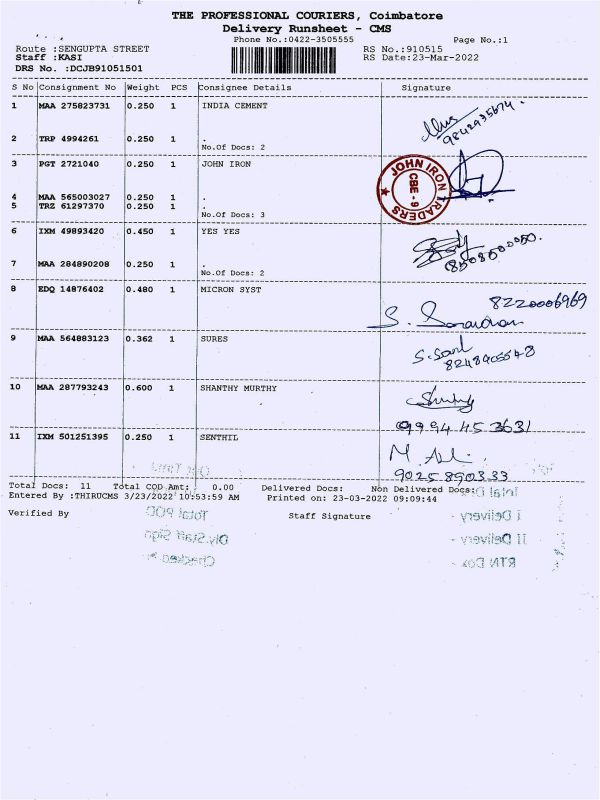 THE PROFESSIONAL COURIERS, Coimbatore
Delivery Runsheet - CMS
Phone No.:0422-3505555 Page No.:1
Route :SENGUPTA STREET RS No.:910515
Staff :KASI RS Date:23-Mar-2022
DRS No. :DCJB91051501
S No Consignment No Weight PCS Consignee Details Signature
1 MAA 275823731 0.250 1 INDIA CEMENT
9842935674
2 TRP 4994261 0.250 1 .
No.Of Docs: 2
3 PGT 2721040 0.250 1 JOHN IRON
JOHN IRON TRADERS
CBE - 9
4 MAA 565003027 0.250 1 .
5 TRZ 61297370 0.250 1 .
No.Of Docs: 3
6 IXM 49893420 0.450 1 YES YES
8508500050.
7 MAA 284890208 0.250 1 .
No.Of Docs: 2
8 EDQ 14876402 0.480 1 MICRON SYST
8220006969
9 MAA 564883123 0.362 1 SURES
10 MAA 287793243 0.600 1 SHANTHY MURTHY
99944 53631
11 IXM 501251395 0.250 1 SENTHIL
90258 90333
Total Docs: 11 Total COD Amt: 0.00 Delivered Docs: Non Delivered Docs:
Entered By :THIRUCMS 3/23/2022 10:53:59 AM Printed on: 23-03-2022 09:09:44
Verified By Staff Signature
Total POD
Dly.Staff Sign
I Delivery -
II Delivery -
RTN Dox -